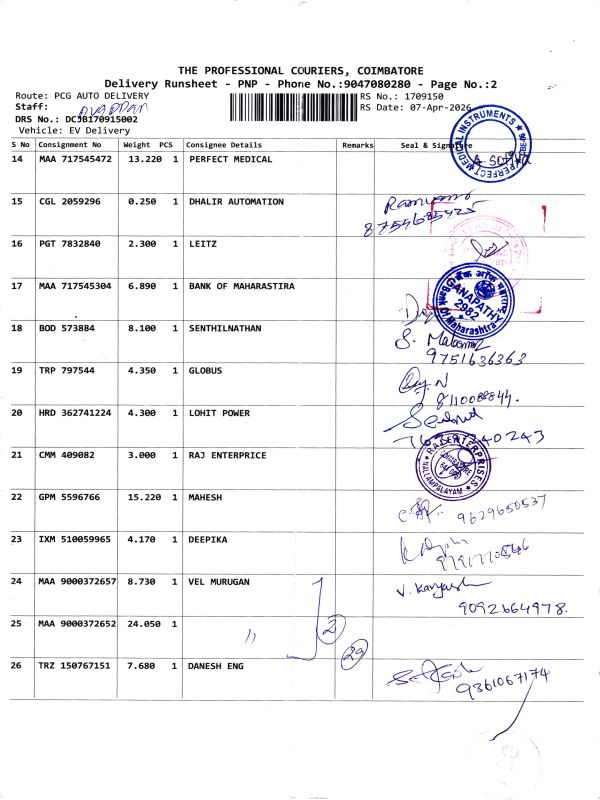 THE PROFESSIONAL COURIERS, COIMBATORE
Delivery Runsheet - PNP - Phone No.:9047080280 - Page No.:2
Route: PCG AUTO DELIVERY
RS No.: 1709150
Staff:
RS Date: 07-Apr-2026
DRS No.: DCJB170915002
Vehicle: EV Delivery
S No Consignment No Weight PCS Consignee Details Remarks Seal & Signature
14 MAA 717545472 13.220 1 PERFECT MEDICAL
PERFECT MEDICAL INSTRUMENTS
15 CGL 2059296 0.250 1 DHALIR AUTOMATION
8754685425
16 PGT 7832840 2.300 1 LEITZ
17 MAA 717545304 6.890 1 BANK OF MAHARASTIRA
बैंक ऑफ महाराष्ट्र
GANAPATHY
2982
Bank of Maharashtra
18 BOD 573884 8.100 1 SENTHILNATHAN
9751636363
19 TRP 797544 4.350 1 GLOBUS
8110088844.
20 HRD 362741224 4.300 1 LOHIT POWER
21 CMM 409082 3.000 1 RAJ ENTERPRICE
RAJ ENTERPRISES
NALLAMPALAYAM
22 GPM 5596766 15.220 1 MAHESH
9629650537
23 IXM 510059965 4.170 1 DEEPIKA
24 MAA 9000372657 8.730 1 VEL MURUGAN
9092664978.
25 MAA 9000372652 24.050 1 "
2
29
26 TRZ 150767151 7.680 1 DANESH ENG
9361067174